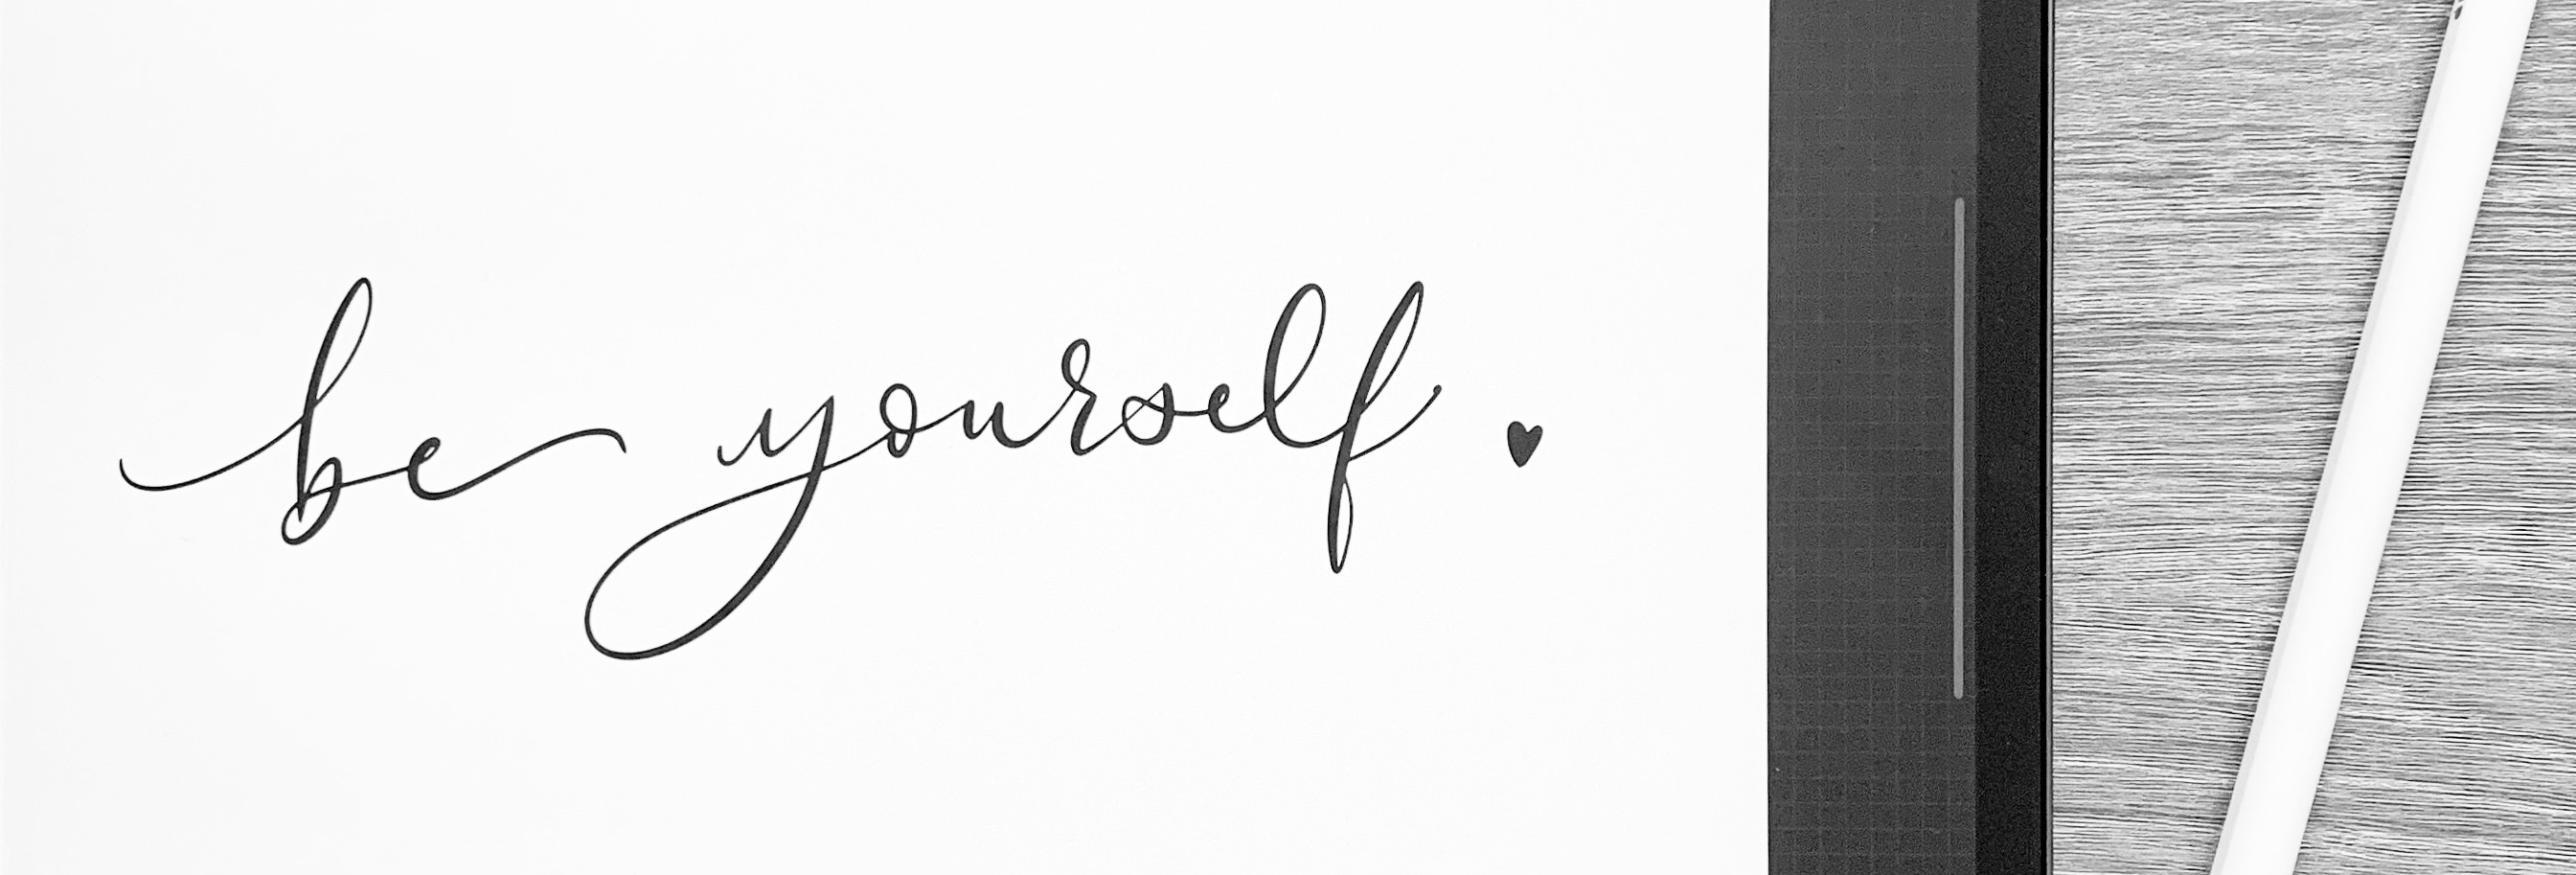 be yourself ♥